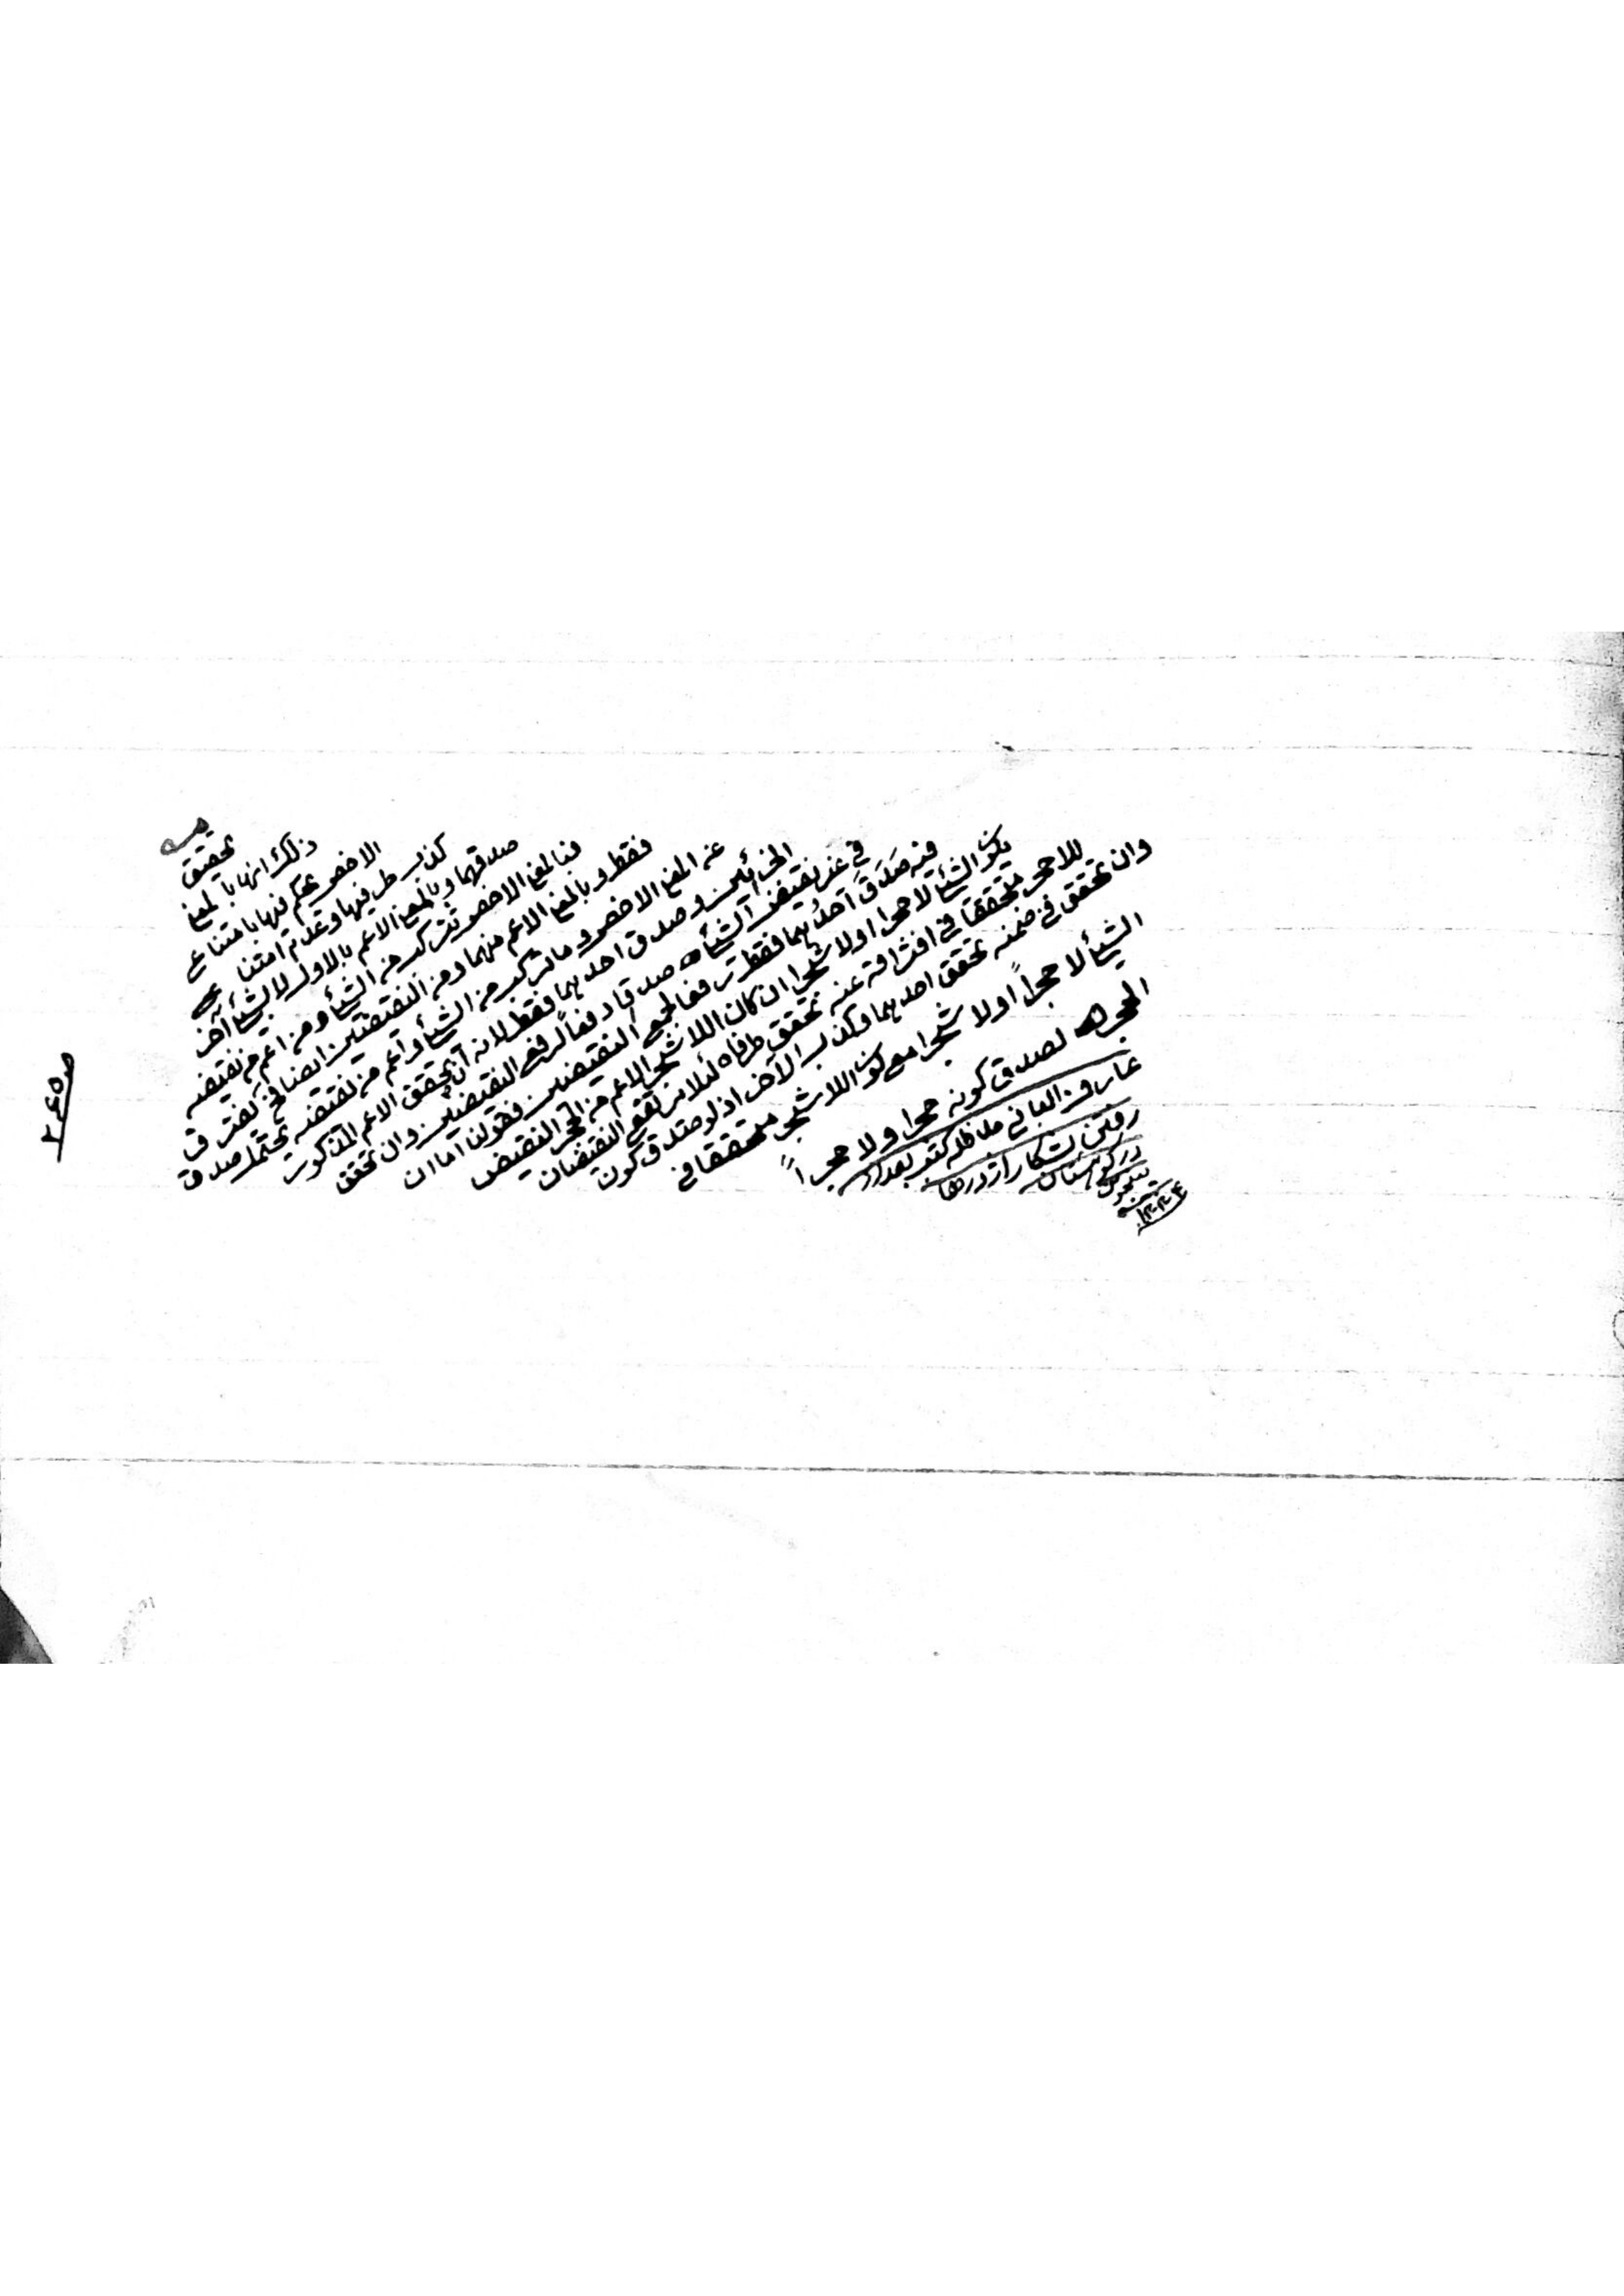 تحقيق
وذلك انها بالمعنى
الاخص يحكم فيها بامتناع
كذب طرفيها وعدم امتناع
صدقهما وبالمعنى الاعم بالاول لا بشئ آخر
فبالمعنى الاخص تتركب من الشئ ومن اعم من نقيضه
فقط وبالمعنى الاعم منهما ومن النقيضين ايضا فح تفترق
عنه المعنى الاخص وما تركب من الشئ واعم من نقيضه يحتمل صدق
الجزئين وصدق احدهما فقط لانه آن تحقق الاعم المذكور
في عين نقيض الشئ صدقا دفعاً لرفع النقيضين وان تحقق
فيه صَدَقَ احدُهما فقط دفعا لجمع النقيضين فقولنا اما ان
يكون الشئ لا حجرا او لا شجرا ان كان اللاشجر الاعم من الحجر النقيض
للا حجر متحققا في افتراقه عنه تحقق طرفاه لئلا يرتفع النقيضان
وان تحقق في ضمنه تحقق احدهما وكذب الآخر اذ لو صدق كون
الشئ لا حجراً او لا شجرا مع كون اللاشجر متحققا في
الحجر لصدق كونه حجرا ولا حجراً
ص٢٤٥